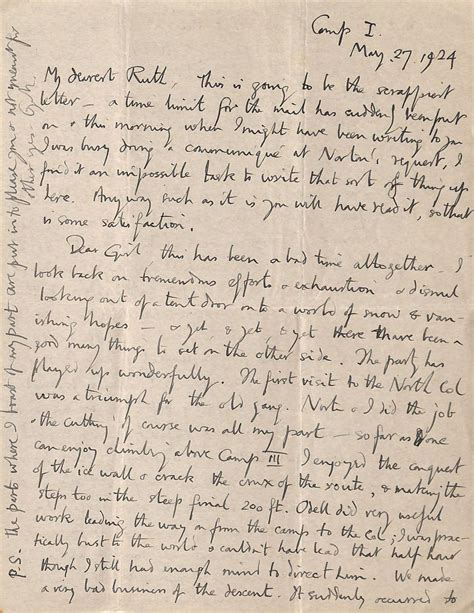 Camp I.
May. 27. 1924
My dearest Ruth, This is going to be the scrappiest
letter – a time limit for the mail has suddenly been put
on & this morning when I might have been writing to you
I was busy doing a communiqué at Norton's request, I
find it an impossible task to write that sort of thing up
here. Anyway such as it is you will have read it, so that
is some satisfaction.
Dear Girl, this has been a bad time altogether – I
look back on tremendous efforts & exhaustion & dismal
looking out of a tent door on to a world of snow & van-
ishing hopes – & yet, & yet, & yet there have been a
good many things to set on the other side. The party has
played up wonderfully. The first visit to the North Col
was a triumph for the old gang. Norton & I did the job
& the cutting of course was all my part – so far as one
can enjoy climbing above Camp III I enjoyed the conquest
of the ice wall & crack the crux of the route, & making the
steps too in the steep final 200 ft. Odell did very useful
work leading the way on from the camp to the Col; I was prac-
tically bust to the world & couldn't have lead that half hour
though I still had enough mind to direct him. We made
a very bad business of the descent. It suddenly occurred to
P.S. – The parts where I boast of my part are put in to please you & not meant for
other eyes. G.M.